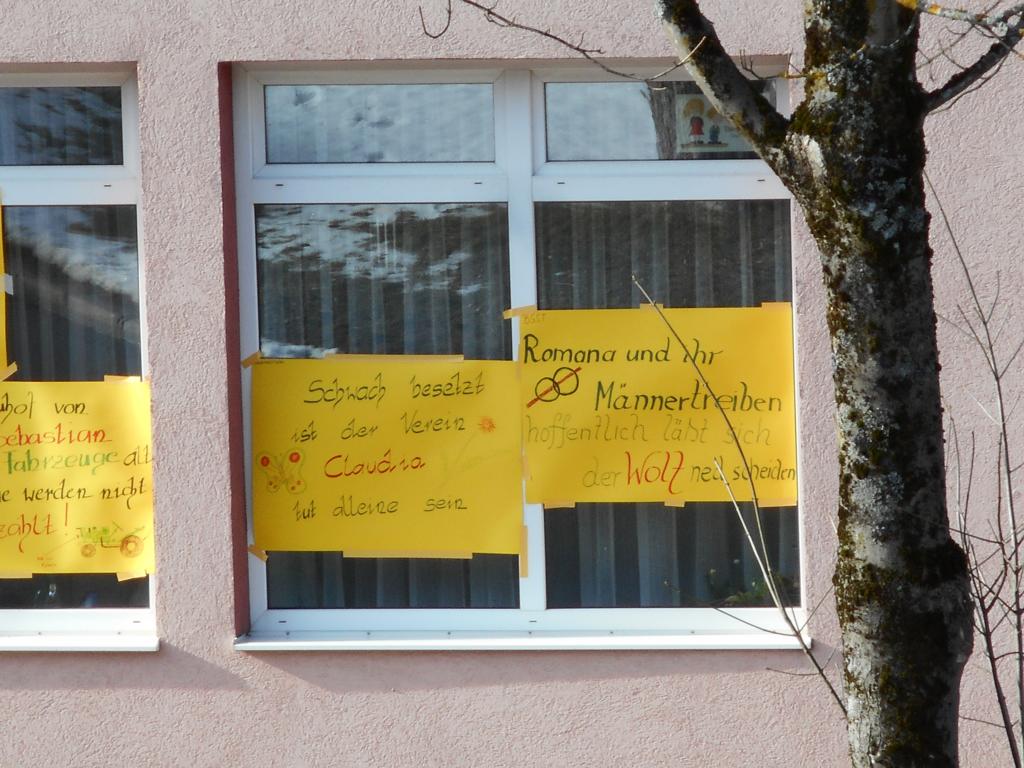 hof von
Sebastian
Fahrzeuge alt
e werden nicht
zählt!
Schwach besetzt
ist der Verein
Claudia
tut alleine sein
Romana und ihr
Männertreiben
hoffentlich läßt sich
der Wolf net scheiden